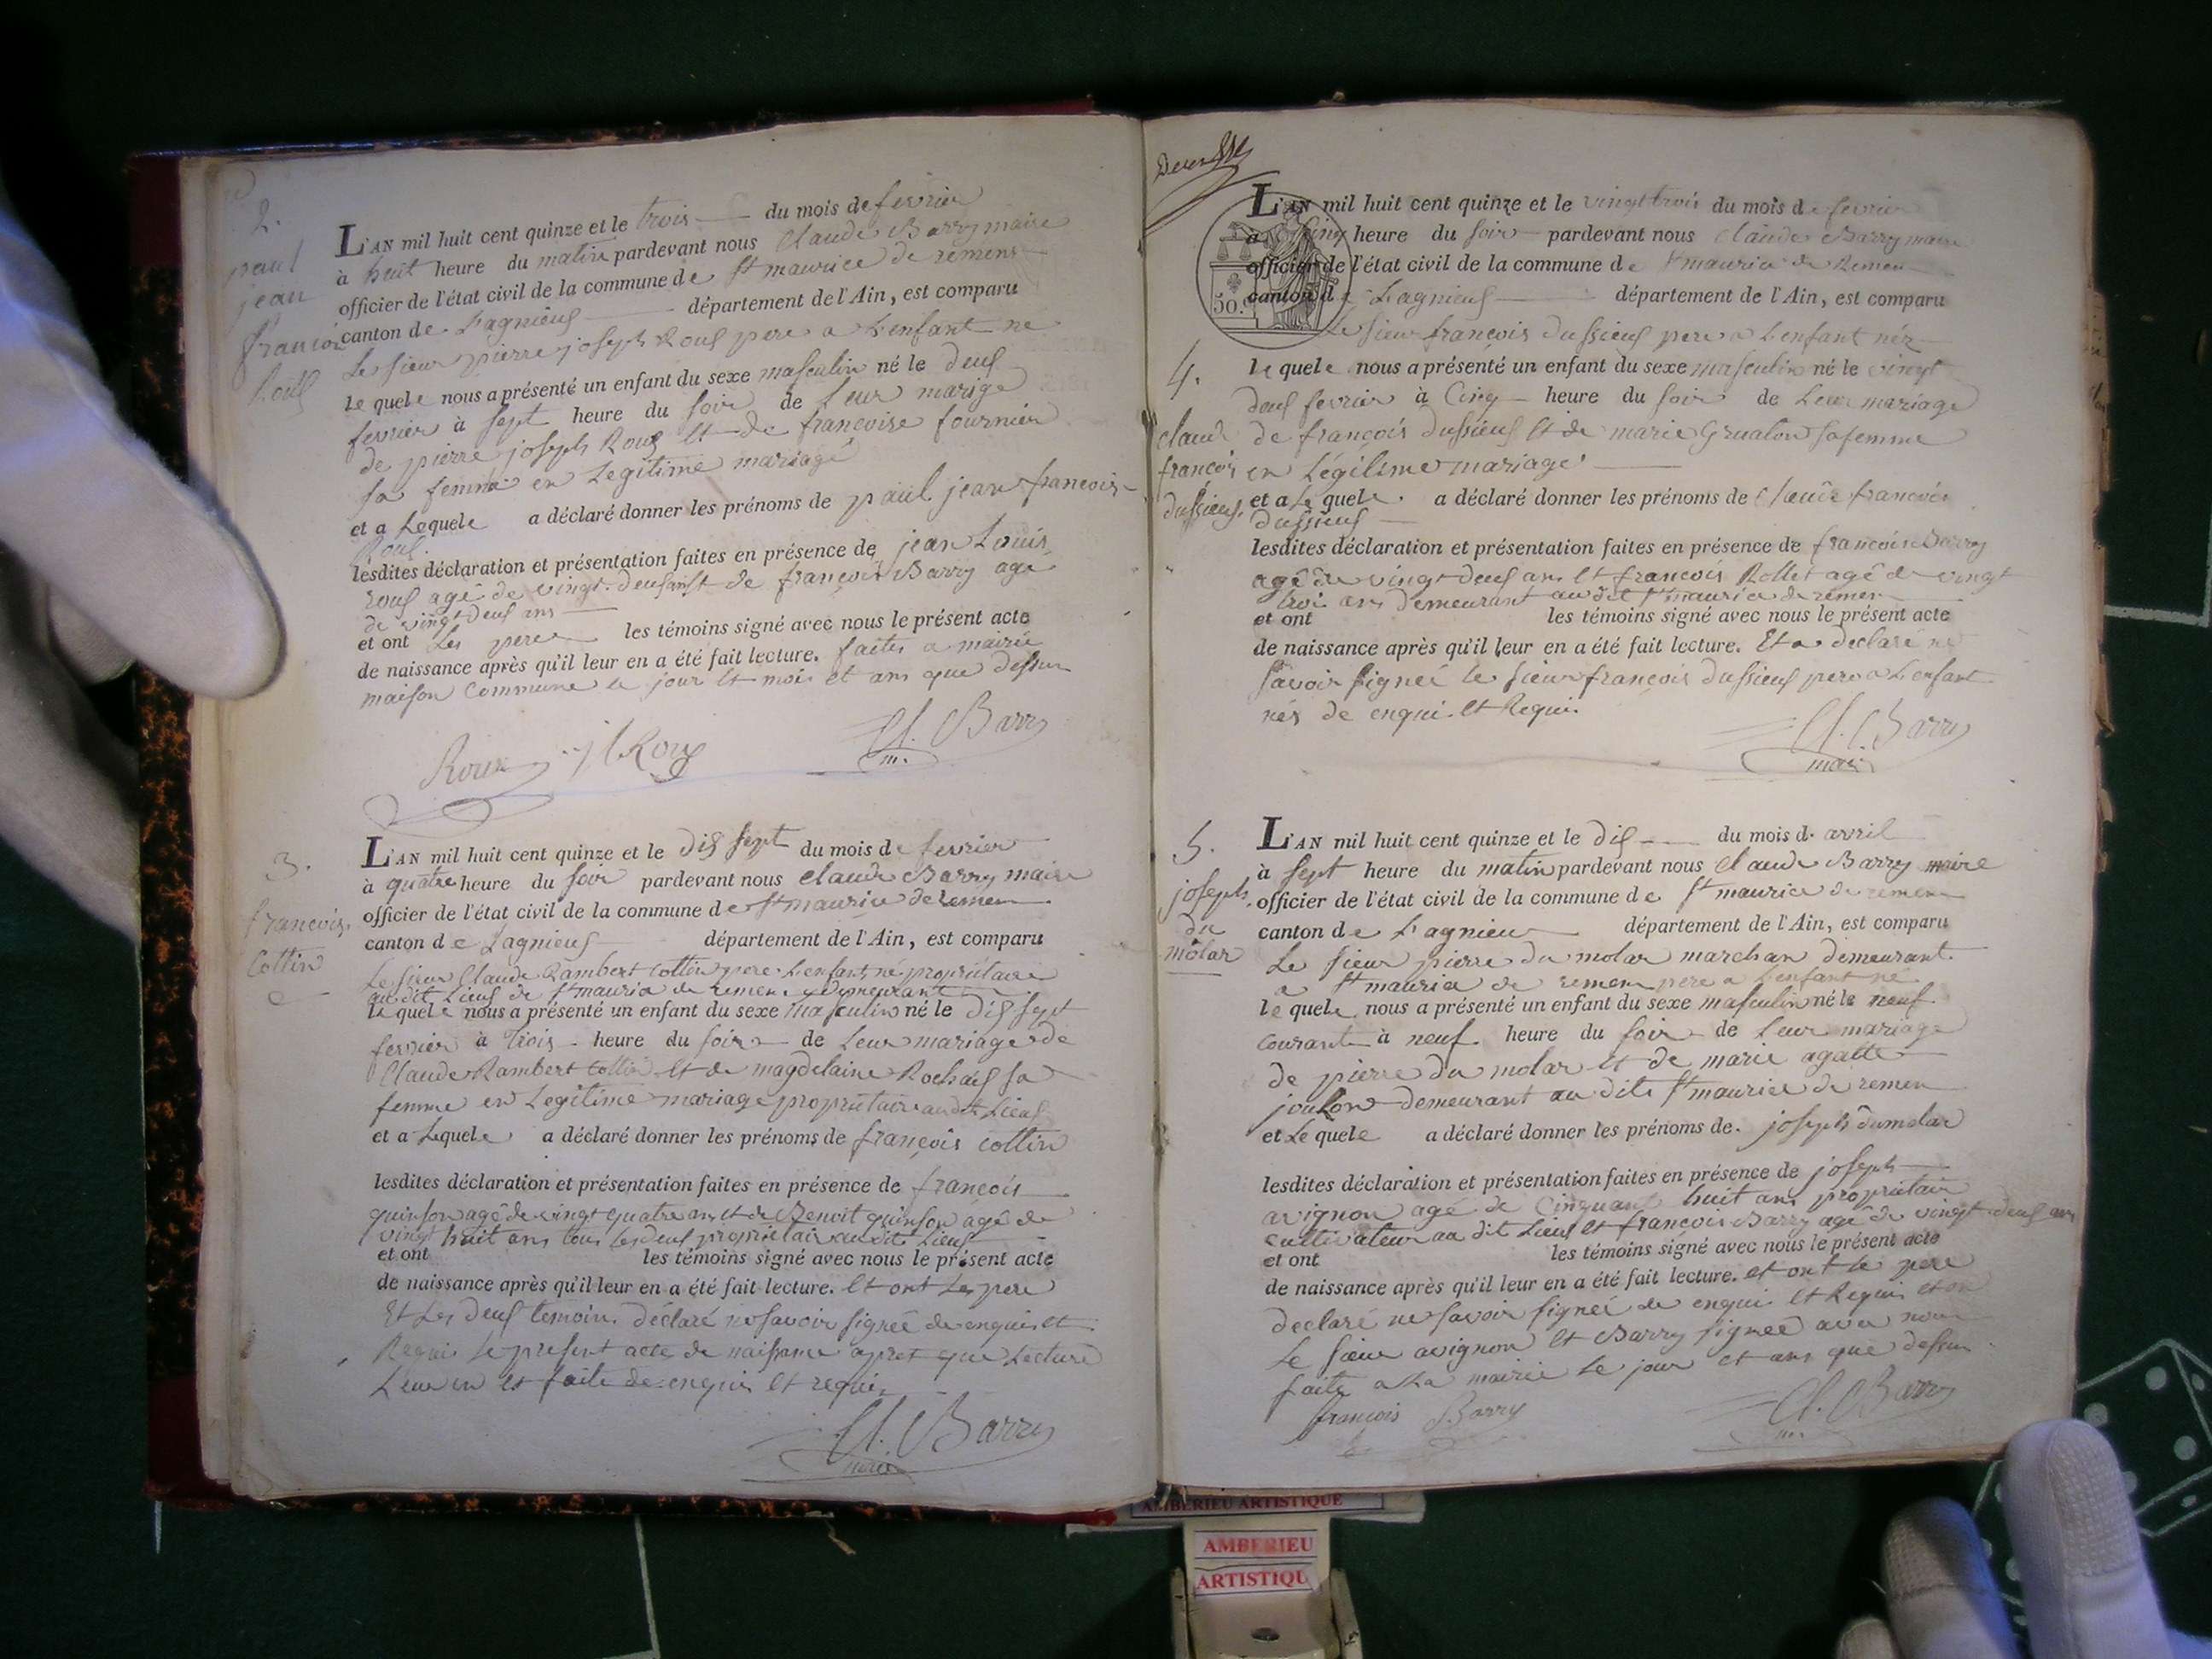 2.
paul
jean
francois
Rous
L'AN mil huit cent quinze et le trois du mois de fevrier
à huit heure du matin pardevant nous Claude Barry maire
officier de l'état civil de la commune de St maurice de remens
canton de Lagnieus département de l'Ain, est comparu
Le sieur pierre joseph Rous pere a L'enfant ne
Le quele nous a présenté un enfant du sexe masculin né le deus
fevrier à sept heure du soir de Leur marige
de pierre joseph Rous et de françoise fournier
sa femme en Legitime mariage
et a Lequele a déclaré donner les prénoms de paul jean francois
Rous.
lesdites déclaration et présentation faites en présence de jean Louis
rous agé de vingt deus ans et de françois Barry agé
de vingt deus ans
et ont Les pere les témoins signé avec nous le présent acte
de naissance après qu'il leur en a été fait lecture. faites a mairie
maison Commune le jour et mois et ans que dessus
Roux jl Roux Cl. Barry
m.
3.
francois
Cottin
L'AN mil huit cent quinze et le dis sept du mois de fevrier
à quatre heure du soir pardevant nous Claude Barry maire
officier de l'état civil de la commune de St maurice de remens
canton de Lagnieus département de l'Ain, est comparu
Le sieur Claude Rambert Cottin pere L'enfant né propriétaire
au dit Lieus de St maurice de remens y demeurant
le quele nous a présenté un enfant du sexe masculin né le dis sept
fevrier à trois heure du soir de Leur mariage de
Claude Rambert Cottin et de magdelaine Rochais sa
femme en Legitime mariage propriétaire au dit Lieus
et a Lequele a déclaré donner les prénoms de françois Cottin
lesdites déclaration et présentation faites en présence de françois
quinson agé de vingt quatre ans et de Benoit quinson agé de
vingt huit ans tous les deus propriétair au dit Lieus
et ont les témoins signé avec nous le présent acte
de naissance après qu'il leur en a été fait lecture. et ont Les pere
Et Les deus temoins déclaré ne savoir signeé de enquis et
Requis Le present acte de naissance apret que Lecture
Leur en est faite de enquis et requis
Cl. Barry
maire
4.
claude
françois
dussieus.
L'AN mil huit cent quinze et le vingt trois du mois de fevrier
à Cinq heure du soir pardevant nous Claude Barry maire
officier de l'état civil de la commune de St maurice de Remens
canton de Lagnieus département de l'Ain, est comparu
50.
Le sieur françois dussieus pere a L'enfant néz
le quele nous a présenté un enfant du sexe masculin né le vingt
deus fevrier à Cinq heure du soir de Leur mariage
de françois dussieus et de marie Gruaton sa femme
en Légitime mariage
et a Le quele a déclaré donner les prénoms de Claude françois
dussieus
lesdites déclaration et présentation faites en présence de francois Barry
agé de vingt deus ans et françois Rollet agé de vingt
troi ans demeurant au dit St maurice de remens
et ont les témoins signé avec nous le présent acte
de naissance après qu'il leur en a été fait lecture. Et a declaré ne
savoir signeé le sieur françois dussieus pere a L'enfant
nés de enqui et Requi.
Cl. Barry
maire
5.
joseph
du
molar
L'AN mil huit cent quinze et le dis du mois d. avril
à sept heure du matin pardevant nous Claude Barry maire
officier de l'état civil de la commune de St maurice de remens
canton de Lagnieu département de l'Ain, est comparu
Le sieur pierre du molar marchan demeurant
a St maurice de remens pere a L'enfant né
le quele nous a présenté un enfant du sexe masculin né le neuf
Courant à neuf heure du soir de Leur mariage
de pierre du molar et de marie agatte
joulon demeurant au dit St maurice de remens
et Le quele a déclaré donner les prénoms de. joseph dumolar
lesdites déclaration et présentation faites en présence de joseph
avignon agé de Cinquante huit ans propriétair
Cultivateur au dit Lieus et françois Barry agé de vingt deus ans
et ont les témoins signé avec nous le présent acte
de naissance après qu'il leur en a été fait lecture. et ont le pere
declaré ne savoir signeé de enqui et Requis et on
Le sieur avignon et Barry signeé avec nous
faite a La mairie Le jour et ans que dessus
françois Barry Cl. Barry
m.
AMBERIEU ARTISTIQUE
AMBERIEU
ARTISTIQU